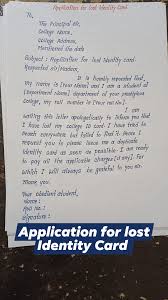 Application for lost Identity Card
To,
The Principal Sir,
College Name,
College Address,
Mentioned the date
Subject : Application for lost Identity Card.
Respected Sir/Madam,
It is humbly requested that,
my name is [Your Name] and I am a student of
[Department name] department of your prestigious
college, my roll number is [Your roll no.].
I am writing this letter to inform you that
I have lost my college ID card. I have tried to
search everywhere but failed to find it. Hence I
request you to please issue me a duplicate
identity card as soon as possible. I am ready
to pay all the applicable charges (if any) for
which I will always be grateful to you.
Thank you.
Your obedient student,
Name:
Roll no :
Signature:
Application for lost
Identity Card